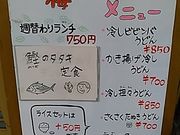 梅
メニュー
週替わりランチ
750円
鰹のタタキ
定食
・冷しビビンバ
うどん
¥850
・かき揚げ冷し
うどん
¥700
・冷し担々うどん
¥850
・さくさくたぬきうどん
¥700
ライスセットは
+50円